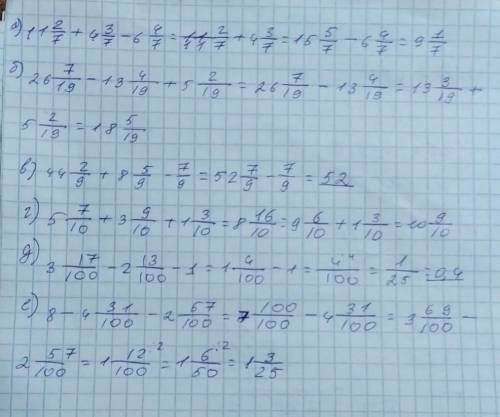 а) 11 2/7 + 4 3/7 - 6 4/7 = 11 2/7 + 4 3/7 = 15 5/7 - 6 4/7 = 9 1/7
б) 26 7/19 - 13 4/19 + 5 2/19 = 26 7/19 - 13 4/19 = 13 3/19 +
5 2/19 = 18 5/19
в) 44 2/9 + 8 5/9 - 7/9 = 52 7/9 - 7/9 = 52
г) 5 7/10 + 3 9/10 + 1 3/10 = 8 16/10 = 9 6/10 + 1 3/10 = 10 9/10
д) 3 17/100 - 2 13/100 - 1 = 1 4/100 - 1 = 4/100 = 1/25 = 0,4
е) 8 - 4 31/100 - 2 57/100 = 7 100/100 - 4 31/100 = 3 69/100 -
2 57/100 = 1 12/100 :2 = 1 6/50 :2 = 1 3/25